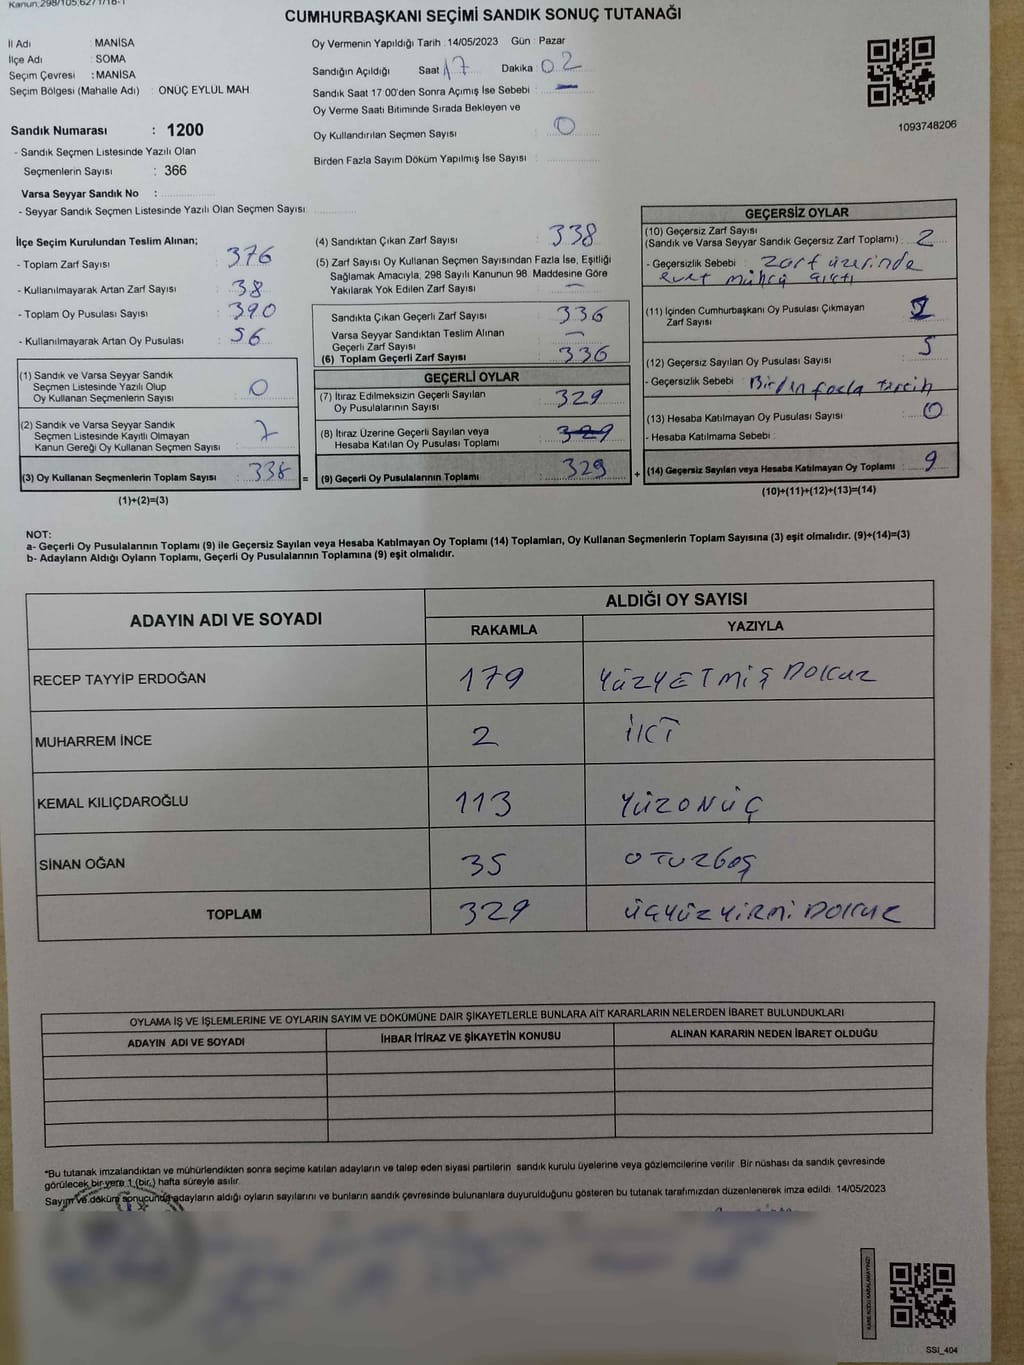 Kanun;298/105,6271/18-1
CUMHURBAŞKANI SEÇİMİ SANDIK SONUÇ TUTANAĞI
İl Adı : MANİSA
İlçe Adı : SOMA
Seçim Çevresi : MANİSA
Seçim Bölgesi (Mahalle Adı) : ONÜÇ EYLÜL MAH.
Oy Vermenin Yapıldığı Tarih : 14/05/2023 Gün : Pazar
Sandığın Açıldığı Saat 17 Dakika 02
Sandık Saat 17:00'den Sonra Açımış İse Sebebi : —
Oy Verme Saati Bitiminde Sırada Bekleyen ve
Oy Kullandırılan Seçmen Sayısı : 0
Birden Fazla Sayım Döküm Yapılmış İse Sayısı :
1093748206
Sandık Numarası : 1200
- Sandık Seçmen Listesinde Yazılı Olan
Seçmenlerin Sayısı : 366
Varsa Seyyar Sandık No :
- Seyyar Sandık Seçmen Listesinde Yazılı Olan Seçmen Sayısı:
İlçe Seçim Kurulundan Teslim Alınan;
- Toplam Zarf Sayısı : 376
- Kullanılmayarak Artan Zarf Sayısı : 38
- Toplam Oy Pusulası Sayısı : 390
- Kullanılmayarak Artan Oy Pusulası : 56
(1) Sandık ve Varsa Seyyar Sandık
Seçmen Listesinde Yazılı Olup
Oy Kullanan Seçmenlerin Sayısı : 0
(2) Sandık ve Varsa Seyyar Sandık
Seçmen Listesinde Kayıtlı Olmayan
Kanun Gereği Oy Kullanan Seçmen Sayısı : 7
(3) Oy Kullanan Seçmenlerin Toplam Sayısı : 338 =
(1)+(2)=(3)
(4) Sandıktan Çıkan Zarf Sayısı : 338
(5) Zarf Sayısı Oy Kullanan Seçmen Sayısından Fazla İse, Eşitliği
Sağlamak Amacıyla, 298 Sayılı Kanunun 98. Maddesine Göre
Yakılarak Yok Edilen Zarf Sayısı : —
Sandıkta Çıkan Geçerli Zarf Sayısı : 336
Varsa Seyyar Sandıktan Teslim Alınan
Geçerli Zarf Sayısı : —
(6) Toplam Geçerli Zarf Sayısı : 336
GEÇERLİ OYLAR
(7) İtiraz Edilmeksizin Geçerli Sayılan
Oy Pusulalarının Sayısı : 329
(8) İtiraz Üzerine Geçerli Sayılan veya
Hesaba Katılan Oy Pusulası Toplamı : 329
(9) Geçerli Oy Pusulalarının Toplamı : 329 +
GEÇERSİZ OYLAR
(10) Geçersiz Zarf Sayısı
(Sandık ve Varsa Seyyar Sandık Geçersiz Zarf Toplamı) : 2
- Geçersizlik Sebebi : zarf üzerinde
evet mührü çıktı
(11) İçinden Cumhurbaşkanı Oy Pusulası Çıkmayan
Zarf Sayısı : 2
(12) Geçersiz Sayılan Oy Pusulası Sayısı : 5
- Geçersizlik Sebebi : Birden fazla tercih
(13) Hesaba Katılmayan Oy Pusulası Sayısı : 0
- Hesaba Katılmama Sebebi :
(14) Geçersiz Sayılan veya Hesaba Katılmayan Oy Toplamı : 9
(10)+(11)+(12)+(13)=(14)
NOT:
a- Geçerli Oy Pusulalarının Toplamı (9) ile Geçersiz Sayılan veya Hesaba Katılmayan Oy Toplamı (14) Toplamları, Oy Kullanan Seçmenlerin Toplam Sayısına (3) eşit olmalıdır. (9)+(14)=(3)
b- Adayların Aldığı Oyların Toplamı, Geçerli Oy Pusulalarının Toplamına (9) eşit olmalıdır.
ADAYIN ADI VE SOYADI ALDIĞI OY SAYISI
RAKAMLA YAZIYLA
RECEP TAYYİP ERDOĞAN 179 YÜZYETMİŞ DOKUZ
MUHARREM İNCE 2 İKİ
KEMAL KILIÇDAROĞLU 113 YÜZONÜÇ
SİNAN OĞAN 35 OTUZBEŞ
TOPLAM 329 ÜÇYÜZYİRMİ DOKUZ
OYLAMA İŞ VE İŞLEMLERİNE VE OYLARIN SAYIM VE DÖKÜMÜNE DAİR ŞİKAYETLERLE BUNLARA AİT KARARLARIN NELERDEN İBARET BULUNDUKLARI
ADAYIN ADI VE SOYADI İHBAR İTİRAZ VE ŞİKAYETİN KONUSU ALINAN KARARIN NEDEN İBARET OLDUĞU
*Bu tutanak imzalandıktan ve mühürlendikten sonra seçime katılan adayların ve talep eden siyasi partilerin sandık kurulu üyelerine veya gözlemcilerine verilir. Bir nüshası da sandık çevresinde
görülecek bir yere 1 (bir.) hafta süreyle asılır.
Sayım ve döküm sonucunda adayların aldığı oyların sayılarını ve bunların sandık çevresinde bulunanlara duyurulduğunu gösteren bu tutanak tarafımızdan düzenlenerek imza edildi. 14/05/2023
KARE KODU KARALAMAYINIZ!
SSI_404